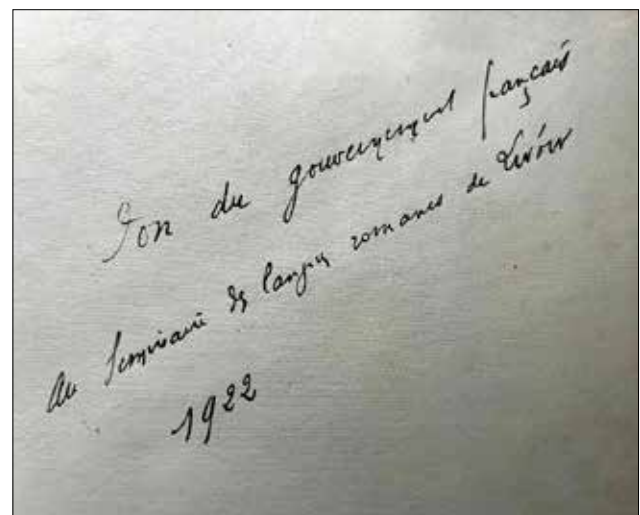 Don du gouvernement français
au Séminaire des langues romanes de Lwów
1922